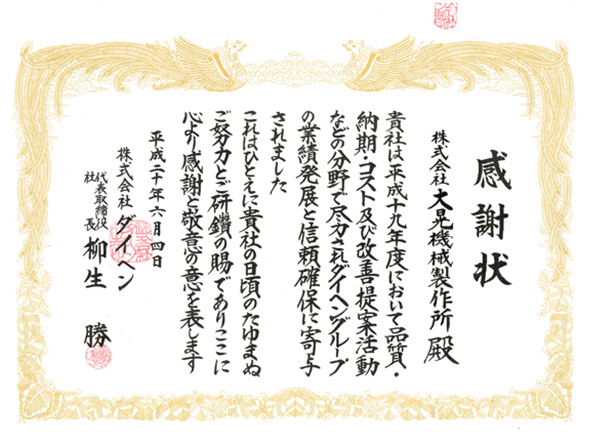 感謝状
株式会社大晃機械製作所殿
貴社は平成十九年度において品質・
納期・コスト及び改善提案活動
などの分野で尽力されダイヘングループ
の業績発展と信頼確保に寄与
されました
これはひとえに貴社の日頃のたゆまぬ
ご努力とご研鑽の賜でありここに
心より感謝と敬意の意を表します
平成二十年六月四日
株式会社ダイヘン
代表取締役
社長
柳生勝